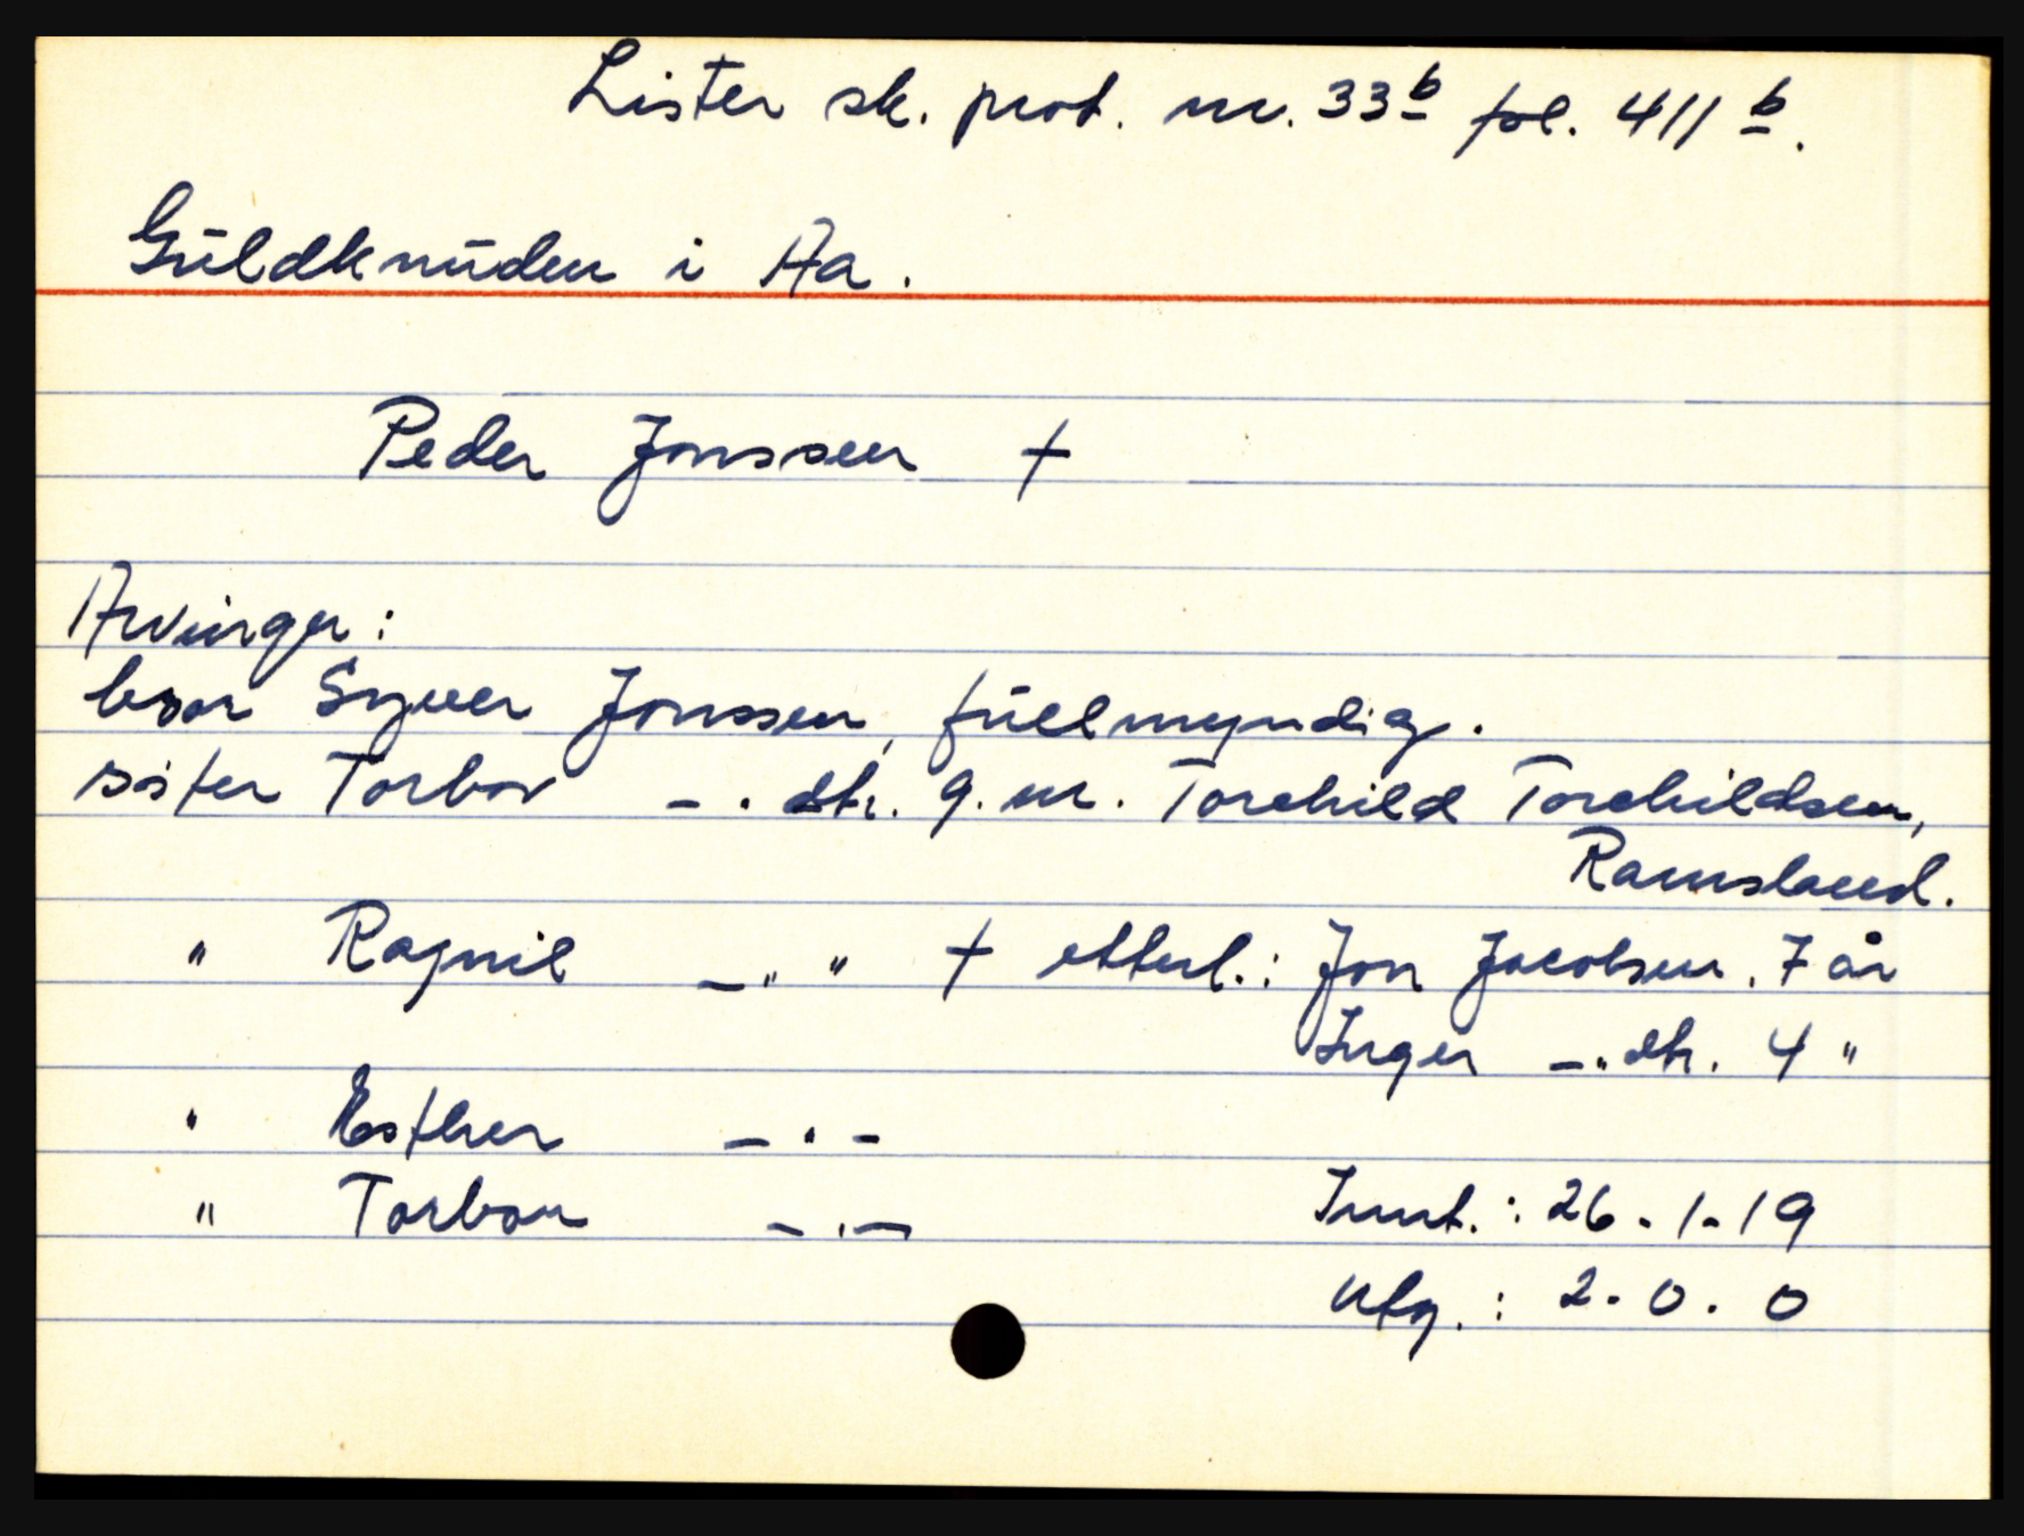 Lister sk. prot. nr. 33b fol. 411 b.
Guldknuden i Aa.
Peder Jonssen †
Arvinger:
bror Syver Jonssen, fullmyndig.
søster Torbor —. dtr. g.m. Torchild Torchildsen,
Ramsland.
" Ragnil —" " † etterl.: Jon Jacobsen. 7 år
Inger —". dtr. 4 "
" Esther — " —
" Torbor — " —
Innt.: 26-1-19
Utg.: 2-0-0